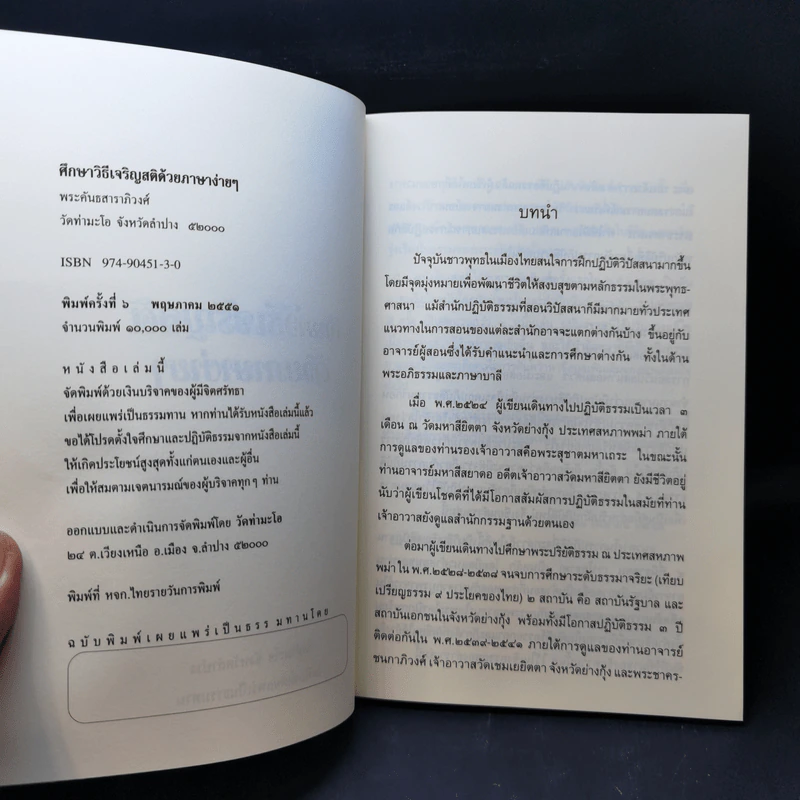 ศึกษาวิธีเจริญสติด้วยภาษาง่ายๆ
พระคันธสาราภิวงศ์
วัดท่ามะโอ จังหวัดลำปาง ๕๒๐๐๐
ISBN 974-90451-3-0
พิมพ์ครั้งที่ ๖ พฤษภาคม ๒๕๕๑
จำนวนพิมพ์ ๑๐,๐๐๐ เล่ม
หนังสือเล่มนี้
จัดพิมพ์ด้วยเงินบริจาคของผู้มีจิตศรัทธา
เพื่อเผยแพร่เป็นธรรมทาน หากท่านได้รับหนังสือเล่มนี้แล้ว
ขอได้โปรดตั้งใจศึกษาและปฏิบัติธรรมจากหนังสือเล่มนี้
ให้เกิดประโยชน์สูงสุดทั้งแก่ตนเองและผู้อื่น
เพื่อให้สมตามเจตนารมณ์ของผู้บริจาคทุกๆ ท่าน
ออกแบบและดำเนินการจัดพิมพ์โดย วัดท่ามะโอ
๒๔ ต.เวียงเหนือ อ.เมือง จ.ลำปาง ๕๒๐๐๐
พิมพ์ที่ หจก.ไทยรายวันการพิมพ์
ฉบับพิมพ์เผยแพร่เป็นธรรมทานโดย
บทนำ
ปัจจุบันชาวพุทธในเมืองไทยสนใจการฝึกปฏิบัติวิปัสสนามากขึ้น
โดยมีจุดมุ่งหมายเพื่อพัฒนาชีวิตให้สงบสุขตามหลักธรรมในพระพุทธ-
ศาสนา แม้สำนักปฏิบัติธรรมที่สอนวิปัสสนาก็มีมากมายทั่วประเทศ
แนวทางในการสอนของแต่ละสำนักอาจจะแตกต่างกันบ้าง ขึ้นอยู่กับ
อาจารย์ผู้สอนซึ่งได้รับคำแนะนำและการศึกษาต่างกัน ทั้งในด้าน
พระอภิธรรมและภาษาบาลี
เมื่อ พ.ศ.๒๕๒๔ ผู้เขียนเดินทางไปปฏิบัติธรรมเป็นเวลา ๓
เดือน ณ วัดมหาสียิตตา จังหวัดย่างกุ้ง ประเทศสหภาพพม่า ภายใต้
การดูแลของท่านรองเจ้าอาวาสคือพระสุชาตมหาเถระ ในขณะนั้น
ท่านอาจารย์มหาสีสยาดอ อดีตเจ้าอาวาสวัดมหาสียิตตา ยังมีชีวิตอยู่
นับว่าผู้เขียนโชคดีที่ได้มีโอกาสสัมผัสการปฏิบัติธรรมในสมัยที่ท่าน
เจ้าอาวาสยังดูแลสำนักกรรมฐานด้วยตนเอง
ต่อมาผู้เขียนเดินทางไปศึกษาพระปริยัติธรรม ณ ประเทศสหภาพ
พม่า ใน พ.ศ.๒๕๒๘-๒๕๓๘ จนจบการศึกษาระดับธรรมาจริยะ (เทียบ
เปรียญธรรม ๙ ประโยคของไทย) ๒ สถาบัน คือ สถาบันรัฐบาล และ
สถาบันเอกชนในจังหวัดย่างกุ้ง พร้อมทั้งมีโอกาสปฏิบัติธรรม ๓ ปี
ติดต่อกันใน พ.ศ.๒๕๓๙-๒๕๔๑ ภายใต้การดูแลของท่านอาจารย์
ชนกาภิวงศ์ เจ้าอาวาสวัดเชมเยยิตตา จังหวัดย่างกุ้ง และพระชาคร-